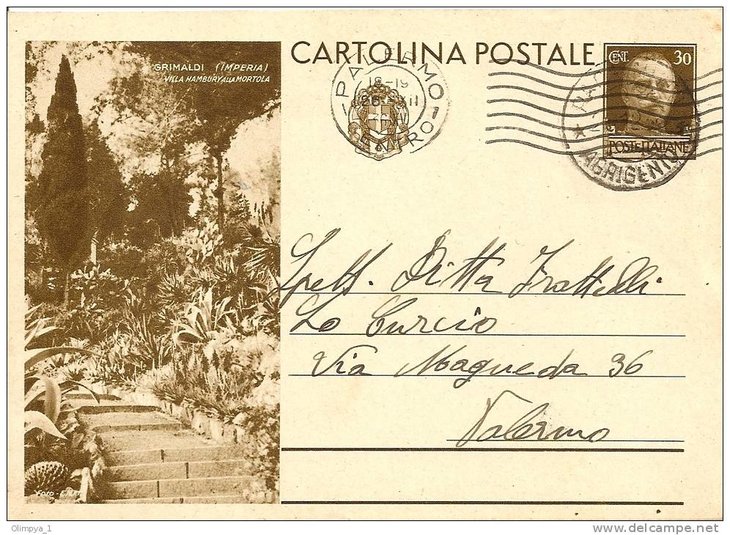 GRIMALDI (IMPERIA)
VILLA HAMBURY ALLA MORTOLA
CARTOLINA POSTALE
CENT. 30
POSTE ITALIANE
PALERMO
18-19
CENTRO
AGRIGENTO
Spett. Ditta Fratelli
Lo Curcio
Via Maqueda 36
Palermo
Foto
Olimpya_1
delcampe.net